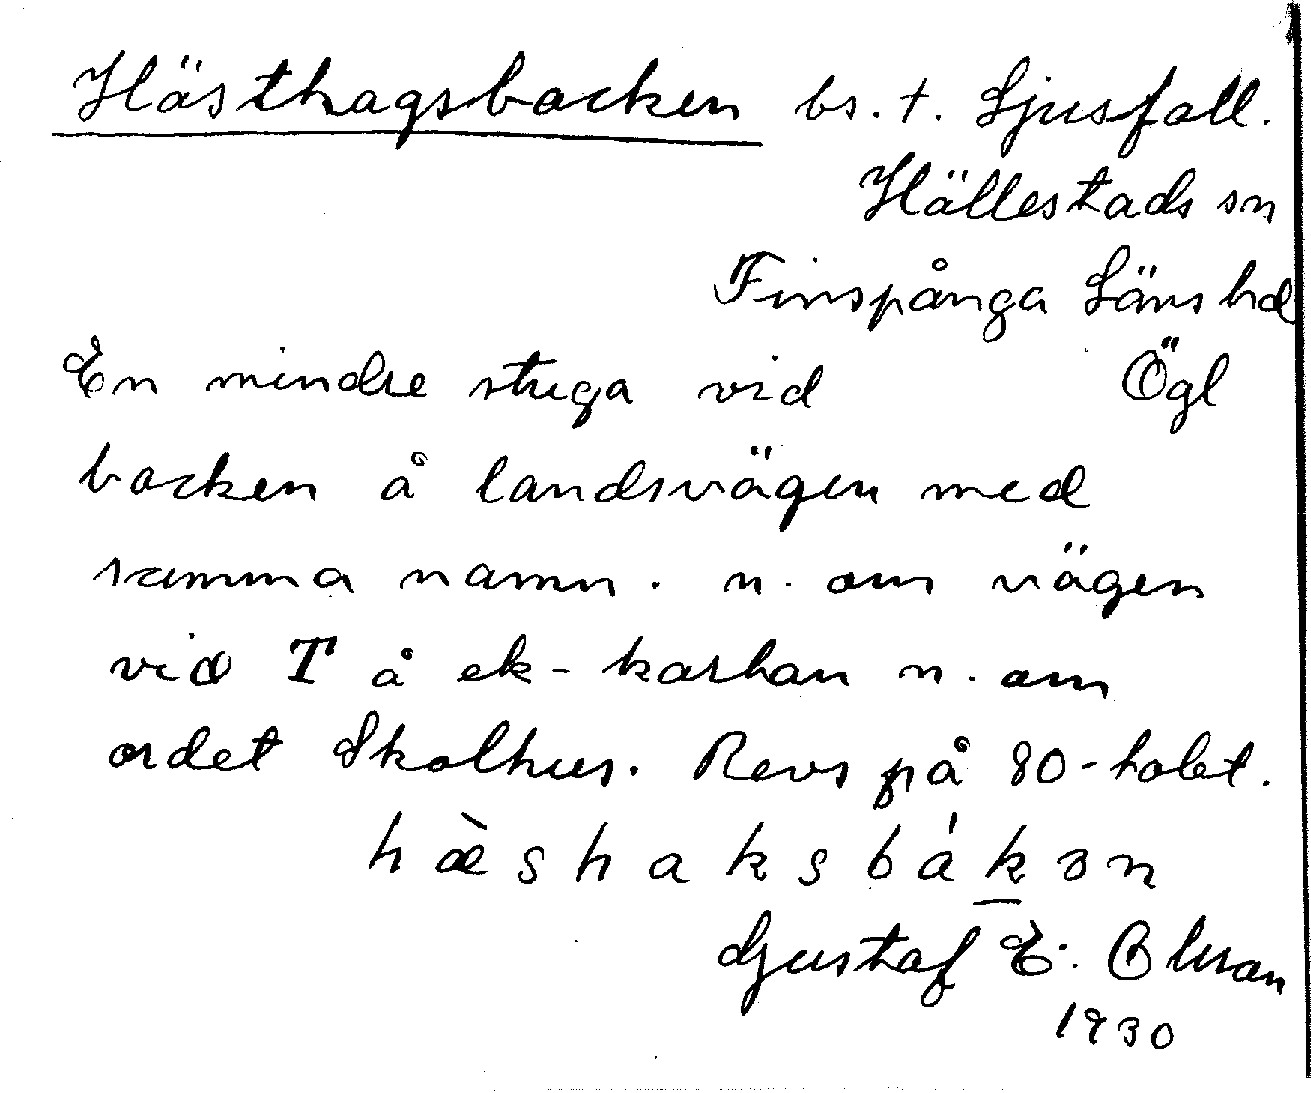 Hästhagsbacken bs. t. Ljusfall.
Hällestads sn
Finspånga Läns hd
En mindre stuga vid Ögl
backen å landsvägen med
samma namn. n. om vägen
vid T å ek-kartan n. om
ordet Skolhus. Revs på 80-talet.
hæ̀shaksbákən
Gustaf E. Olsson
1930